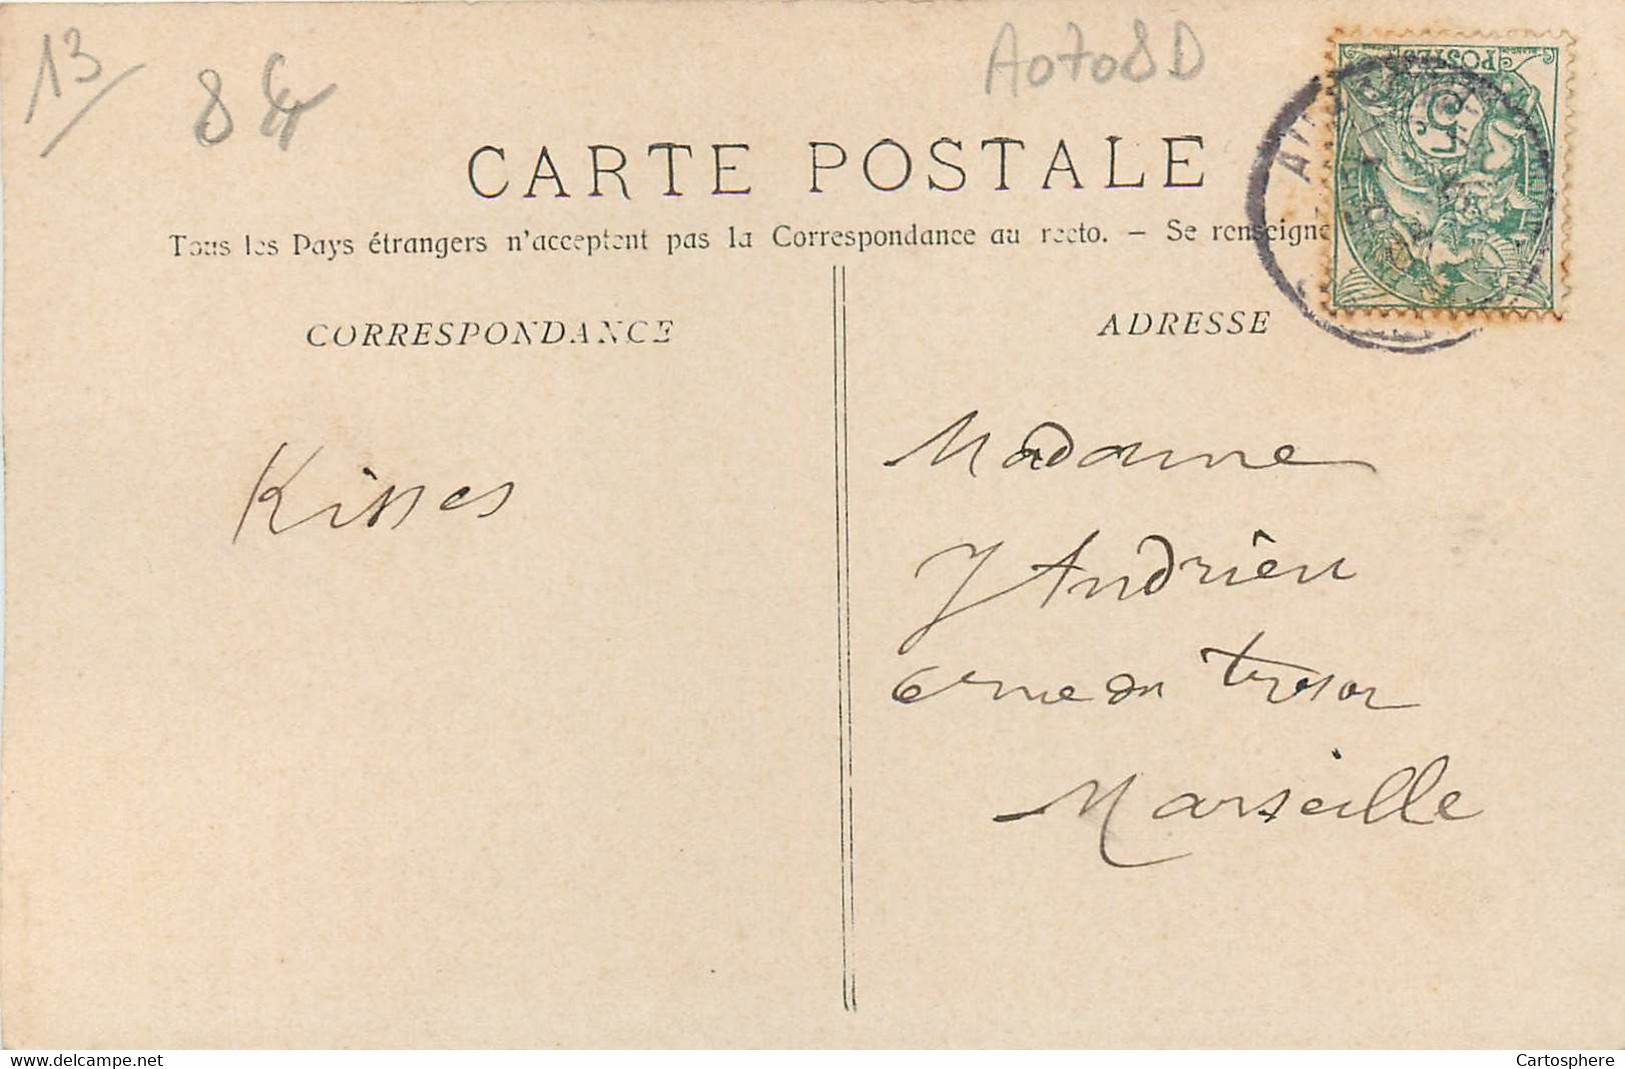 13
8 €
A0708D
CARTE POSTALE
Tous les Pays étrangers n'acceptent pas la Correspondance au recto. - Se renseigne
CORRESPONDANCE
ADRESSE
POSTES
5
Kisses
Madame
J Andrieu
6 rue du trésor
Marseille
https://www.delcampe.net
Cartosphere